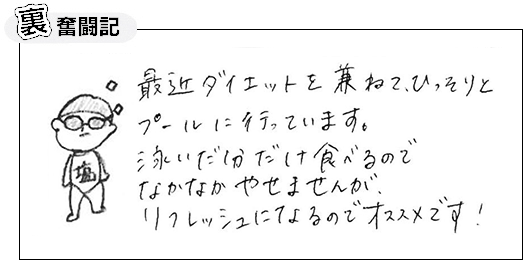 裏 奮闘記
最近ダイエットを兼ねて、ひっそりと
プールに行っています。
泳いだ分だけ食べるので
なかなかやせませんが、
リフレッシュになるのでオススメです！
塩